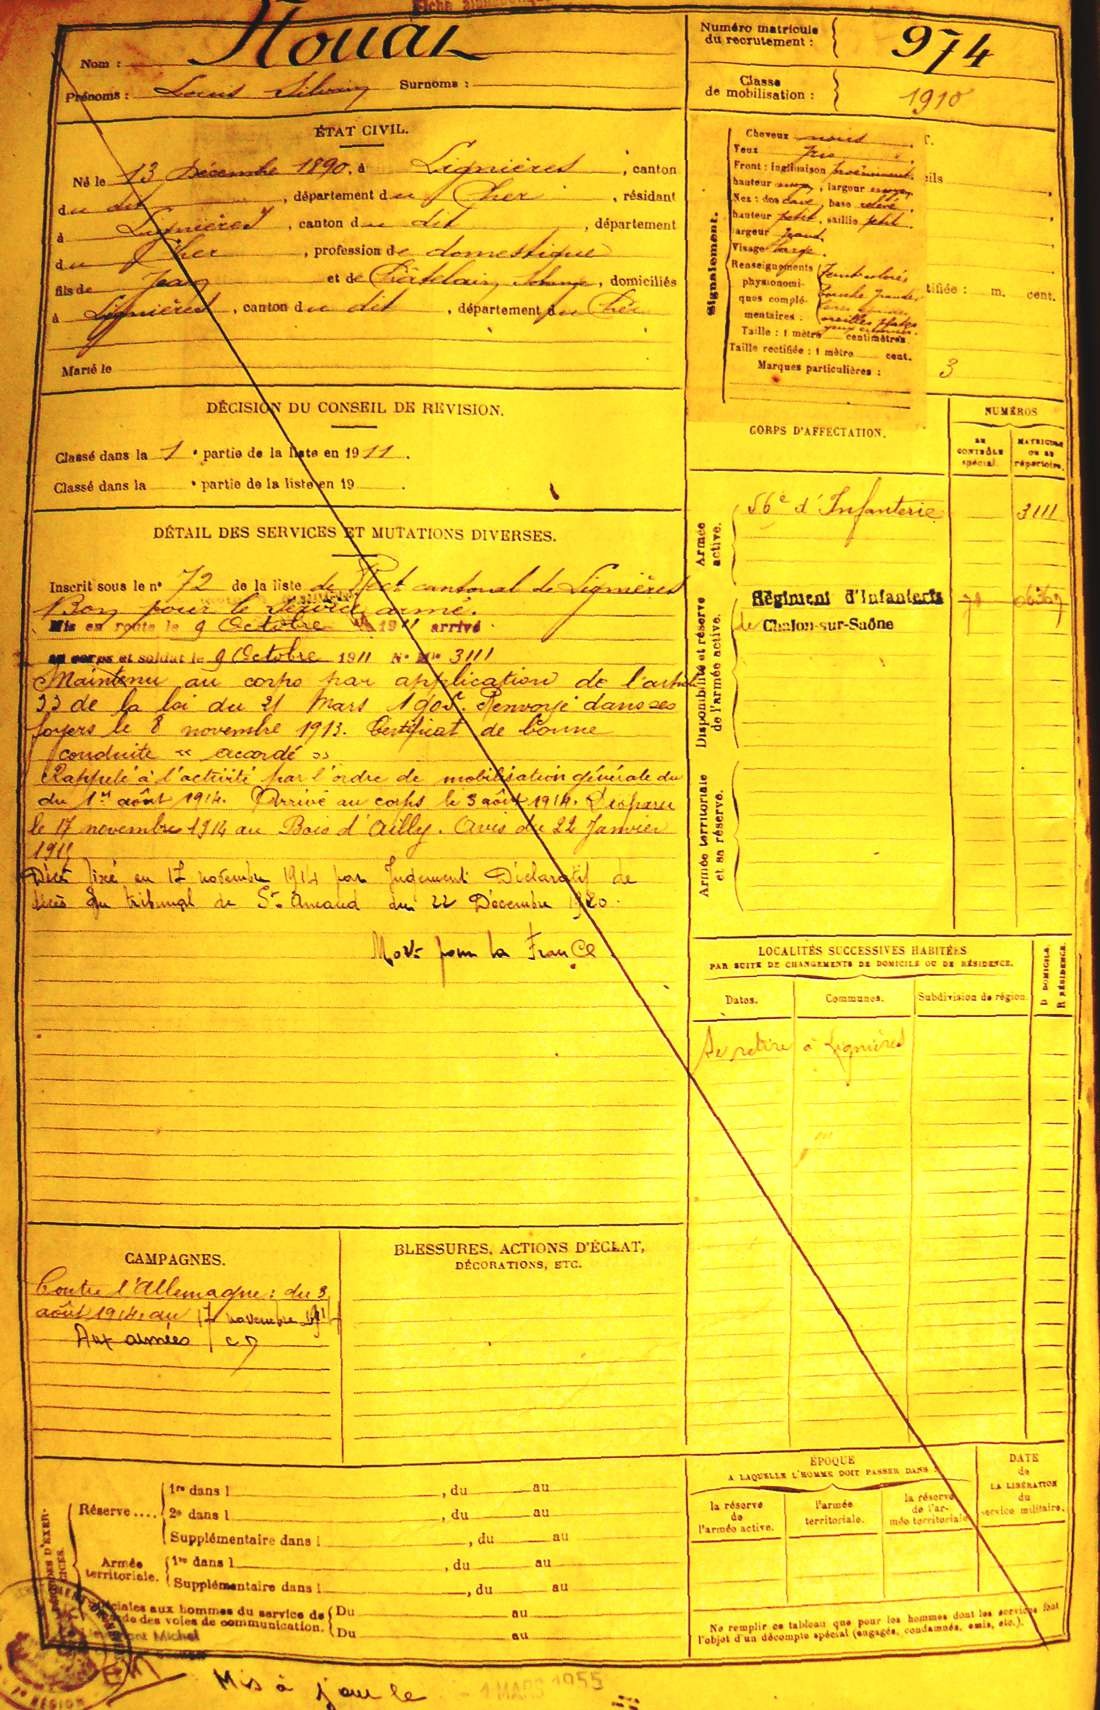 Nom : Nouaz
Prénoms : Louis Silvain Surnoms :
Numéro matricule
du recrutement : 974
Classe
de mobilisation : 1910
ÉTAT CIVIL.
Né le 13 Décembre 1890, à Lignières, canton
du dit, département du Cher, résidant
à Lignières, canton du dit, département
du Cher, profession de domestique
fils de Jean et de Châtelain Solange, domiciliés
à Lignières, canton du dit, département du Cher
Marié le
Signalement.
Cheveux noirs
Yeux gris
Front : inclinaison proéminent
hauteur moy., largeur moy.
Nez : dos cave, base relevé
hauteur petit, saillie petit
largeur grand
Visage large
Renseignements
physionomi-
ques complé-
mentaires :
bouche grande
oreilles
Taille : 1 mètre centimètres
Taille rectifiée : 1 mètre cent.
Marques particulières :
ils
tifiée : m. cent.
3
DÉCISION DU CONSEIL DE REVISION.
Classé dans la 1 e partie de la liste en 1911.
Classé dans la e partie de la liste en 19 .
DÉTAIL DES SERVICES ET MUTATIONS DIVERSES.
Inscrit sous le n° 72 de la liste de Rect cantonal de Lignières
Bon pour le service armé.
Mis en route le 9 Octobre 1911 arrivé
au corps et soldat le 9 Octobre 1911 N° Mle 3111
Maintenu au corps par application de l'article
33 de la loi du 21 Mars 1905. Renvoyé dans ses
foyers le 8 novembre 1913. Certificat de bonne
conduite " accordé "
Rappelé à l'activité par l'ordre de mobilisation générale du
du 1er août 1914. Arrivé au corps le 3 août 1914. Disparu
le 17 novembre 1914 au Bois d'Ailly. Avis du 22 Janvier
1915
Décès fixé au 17 novembre 1914 par Jugement Déclaratif de
décès du tribunal de St Amand du 22 Décembre 1920.
Mort pour la France
CORPS D'AFFECTATION.
NUMÉROS
AU
CONTRÔLE
spécial.
MATRICULE
OU AU
répertoire.
Armée
active.
56e d'Infanterie 3111
Disponibilité et réserve
de l'armée active.
Régiment d'Infanterie
de Chalon-sur-Saône
Armée territoriale
et sa réserve.
LOCALITÉS SUCCESSIVES HABITÉES
PAR SUITE DE CHANGEMENTS DE DOMICILE OU DE RÉSIDENCE.
Dates. Communes. Subdivision de région. D DOMICILE. R RÉSIDENCE.
Se retire à Lignières
CAMPAGNES.
Contre l'Allemagne : du 3
août 1914 au 17 novembre 1914
Aux armées
BLESSURES, ACTIONS D'ÉCLAT,
DÉCORATIONS, ETC.
Réserve....
1re dans l , du au
2e dans l , du au
Supplémentaire dans l , du au
Armée
territoriale.
1re dans l , du au
Supplémentaire dans l , du au
spéciales aux hommes du service de
des voies de communication.
Du au
Du au
ÉPOQUE
A LAQUELLE L'HOMME DOIT PASSER DANS :
la réserve
de
l'armée active.
l'armée
territoriale.
la réserve
de l'ar-
mée territoriale.
DATE
de
LA LIBÉRATION
du
service militaire.
Ne remplir ce tableau que pour les hommes dont les services font
l'objet d'un décompte spécial (engagés, condamnés, omis, etc.).
Mis à jour le - 1 MARS 1955